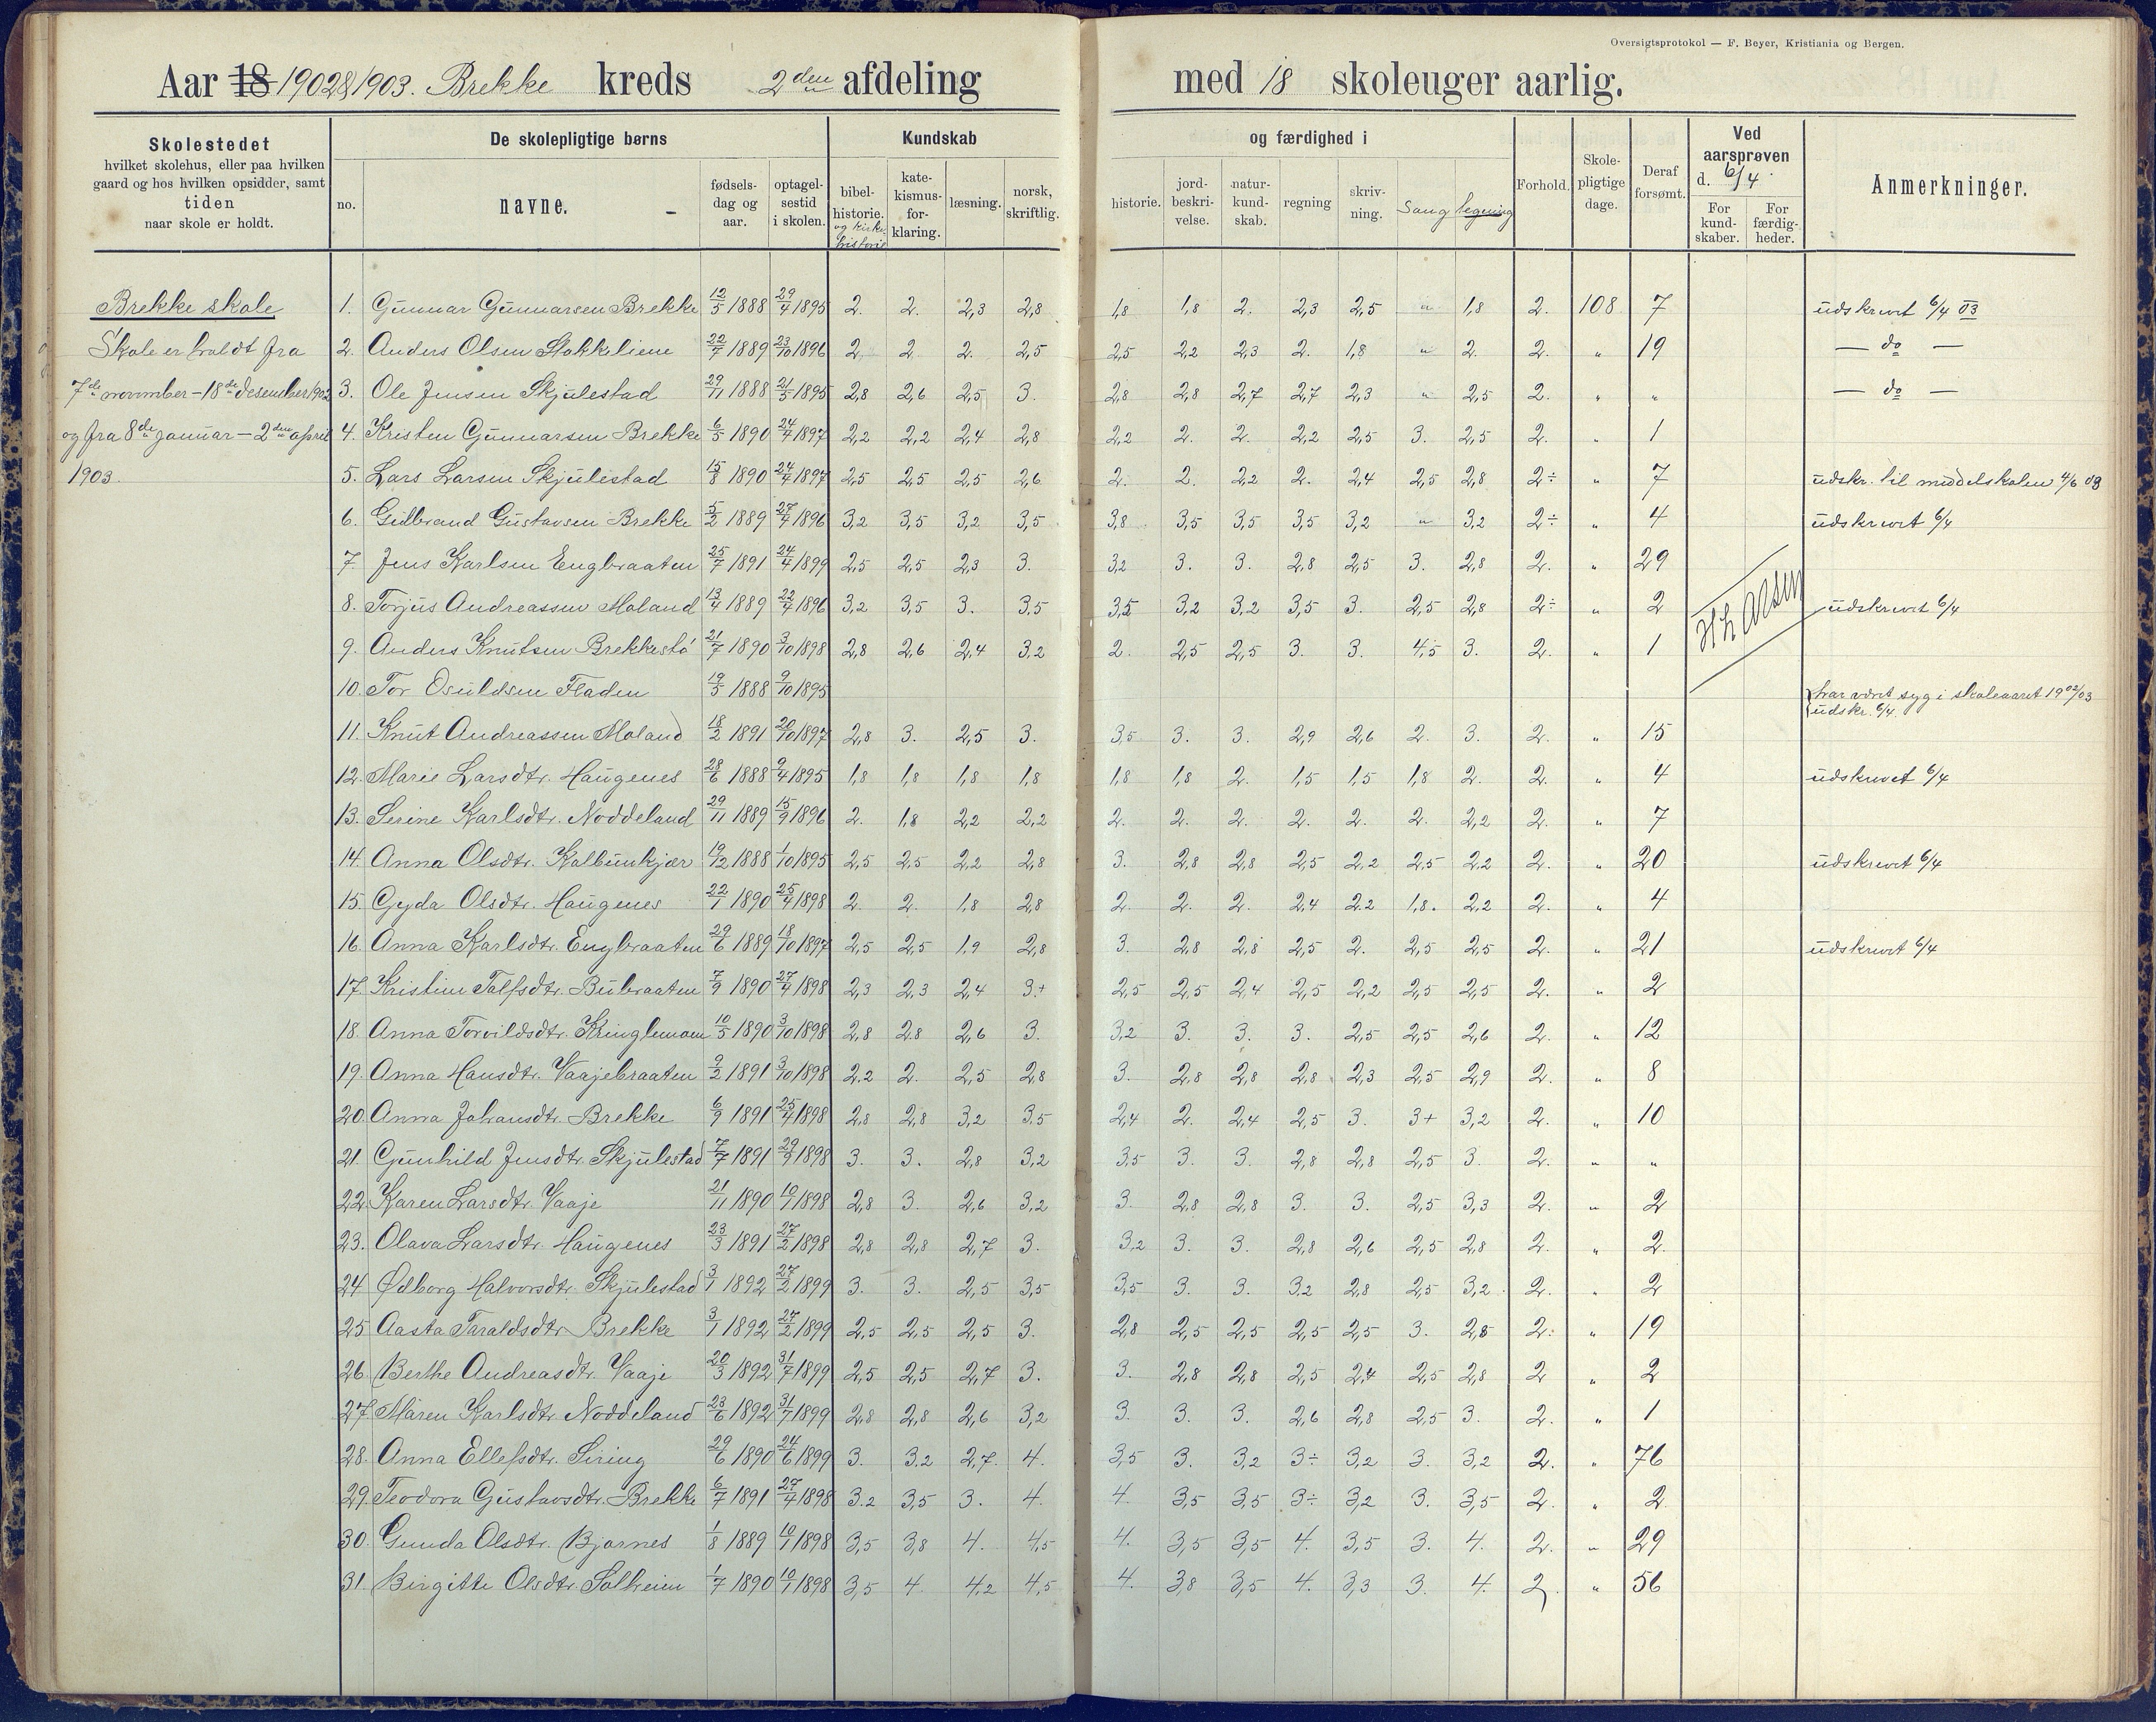 Oversigtsprotokol — F. Beyer, Kristiania og Bergen.
Aar 18 1902 & 1903. Brekke kreds 2den afdeling med 18 skoleuger aarlig.
Skolestedet hvilket skolehus, eller paa hvilken gaard og hos hvilken opsidder, samt tiden naar skole er holdt.
De skolepligtige børns
no. navne. fødsels-dag og aar. optagel-sestid i skolen.
Kundskab og færdighed i
bibel-historie. og kirke-historie kate-kismus-for-klaring. læsning. norsk, skriftlig. historie. jord-beskri-velse. natur-kund-skab. regning skriv-ning. Sang tegning
Forhold. Skole-pligtige dage. Deraf forsømt. Ved aarsprøven d. 6/4. For kund-skaber. For færdig-heder. Anmerkninger.
Brekke skole
Skole er holdt fra
7de november – 18de desember 1902
og fra 8de januar – 2den april
1903.
1. Gunnar Gunnarsen Brekke 12/5 1888 29/4 1895 2. 2. 2,3 2,8 1,8 1,8 2. 2,3 2,5 " 1,8 2. 108 7 udskrevet 6/4 03
2. Anders Olsen Stokkeliene 22/7 1889 23/10 1896 2. 2 2. 2,5 2,5 2,2 2,3 2. 1,8 " 2. 2. " 19 — do —
3. Ole Jensen Skjulestad 29/11 1888 21/5 1895 2,8 2,6 2,5 3. 2,8 2,8 2,7 2,7 2,3 " 2,5 2. " " — do —
4. Kristen Gunnarsen Brekke 6/5 1890 24/4 1897 2,2 2,2 2,4 2,8 2,2 2. 2. 2,2 2,5 3. 2,5 2. " 1
5. Lars Larsen Skjulestad 15/8 1890 24/4 1897 2,5 2,5 2,5 2,6 2. 2. 2,2 2. 2,4 2,5 2,8 2÷ " 7 udskr. til middelskolen 4/6 03
6. Gulbrand Gustavsen Brekke 5/2 1889 27/4 1896 3,2 3,5 3,2 3,5 3,8 3,5 3,5 3,5 3,2 " 3,2 2÷ " 4 udskrevet 6/4
7. Jens Karlsen Engbraaten 25/7 1891 24/4 1899 2,5 2,5 2,3 3. 3,2 3. 3. 2,8 2,5 3. 2,8 2. " 29
8. Torjus Andreassen Moland 13/4 1889 22/4 1896 3,2 3,5 3. 3,5 3,5 3,2 3,2 3,5 3. 2,5 2,8 2÷ " 2 H Larsen udskrevet 6/4
9. Anders Knutsen Brekkestø 21/7 1890 3/10 1898 2,8 2,6 2,4 3,2 2. 2,5 2,5 3. 3. 4,5 3. 2. " 1
10. Tor Osuldsen Fladen 19/5 1888 9/10 1895 har været syg i skoleaaret 1902/03
udskr. 6/4.
11. Knut Andreassen Moland 18/2 1891 20/10 1897 2,8 3. 2,5 3. 3,5 3. 3. 2,9 2,6 2. 3. 2. " 15
12. Marie Larsdtr. Haugenes 28/6 1888 9/4 1895 1,8 1,8 1,8 1,8 1,8 1,8 2. 1,5 1,5 1,8 2. 2. " 4 udskrevet 6/4
13. Serine Karlsdtr. Noddeland 29/11 1889 15/9 1896 2. 1,8 2,2 2,2 2. 2. 2. 2. 2. 2. 2,2 2. " 7
14. Anna Olsdtr. Kalbunkjær 19/12 1888 1/10 1895 2,5 2,5 2,2 2,8 3. 2,8 2,8 2,5 2,2 2,5 2,2 2. " 20 udskrevet 6/4
15. Gyda Olsdtr. Haugenes 22/1 1890 25/4 1898 2. 2. 1,8 2,8 2. 2. 2. 2,4 2,2 1,8. 2,2 2. " 4
16. Anna Karlsdtr. Engbraaten 29/6 1889 18/10 1897 2,5 2,5 1,9 2,8 3. 2,8 2,8 2,5 2. 2,5 2,5 2. " 21 udskrevet 6/4
17. Kristine Tolfsdtr. Bubraaten 7/9 1890 27/4 1898 2,3 2,3 2,4 3.+ 2,5 2,5 2,4 2,5 2,2 2,5 2,5 2. " 2
18. Anna Torvildsdtr. Kringlemoen 10/5 1890 3/10 1898 2,8 2,8 2,6 3. 3,2 3. 3. 3. 2,5 2,5 2,6 2. " 12
19. Anna Hansdtr. Vaajebraaten 9/2 1891 3/10 1898 2,2 2. 2,5 2,8 3. 2,8 2,8 2,8 2,3 2,5 2,9 2. " 8
20. Anna Johansdtr. Brekke 6/9 1891 25/4 1898 2,8 2,8 3,2 3,5 2,4 2. 2,4 2,5 3. 3+ 3,2 2. " 10
21. Gunhild Jensdtr. Skjulestad 7/7 1891 29/9 1898 3. 3. 2,8 3,2 3,5 3. 3. 2,8 2,8 2,5 3. 2. " "
22. Karen Larsdtr. Vaaje 21/11 1890 10/1 1898 2,8 3. 2,6 3,2 3. 2,8 2,8 3. 3. 2,5 3,3 2. " 2
23. Olava Larsdtr. Haugenes 23/3 1891 27/2 1898 2,8 2,8 2,7 3. 3,2 3. 3. 2,8 2,6 2,5 2,8 2. " 2.
24 Ødborg Halvorsdtr. Skjulestad 3/1 1892 27/2 1899 3. 3. 2,5 3,5 3,5 3. 3. 3,2 2,8 2,5 3,2. 2. " 2
25 Aasta Taraldsdtr Brekke 3/1 1892 27/2 1899 2,5 2,5 2,5 3. 2,8 2,5 2,5 2,5 2,5 3. 2,8 2. " 19
26. Berthe Andreasdtr. Vaaje 20/3 1892 31/7 1899 2,5 2,5 2,7 3. 3. 2,8 2,8 2,5 2,4 2,5 2,8 2 " 2
27. Maren Karlsdtr. Noddeland 23/6 1892 31/7 1899 2,8 2,8 2,6 3,2 3. 3. 3. 2,6 2,8 2,5 3. 2. " 1
28. Anna Ellefsdtr. Siring 29/6 1890 24/6 1899 3. 3.2 2,7. 4. 3,5 3. 3,2 3÷ 3,2 3. 3,2 2. " 76
29. Teodora Gustavsdtr. Brekke 6/7 1891 27/4 1898 3.2 3,5 3. 4. 4. 3,5 3,5 3÷ 3,2 3. 3,5 2. " 2
30. Gunda Olsdtr. Bjornes 1/8 1889 10/1 1898 3,5 3,8 4. 4,5 4. 3,5 3,5 4. 3,5 3. 4. 2. " 29
31. Birgitte Olsdtr. Solheim 1/7 1890 10/1 1898 3,5 4. 4,2 4,5 4. 3,8 3,5 4. 3,3 3. 4. 2. " 56